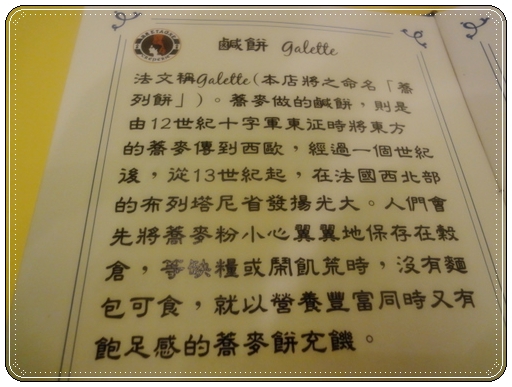 鹹餅 Galette
法文稱Galette(本店將之命名「蕎
列餅」)。蕎麥做的鹹餅,則是
由12世紀十字軍東征時將東方
的蕎麥傳到西歐,經過一個世紀
後,從13世紀起,在法國西北部
的布列塔尼省發揚光大。人們會
先將蕎麥粉小心翼翼地保存在穀
倉,等缺糧或鬧飢荒時,沒有麵
包可食,就以營養豐富同時又有
飽足感的蕎麥餅充饑。